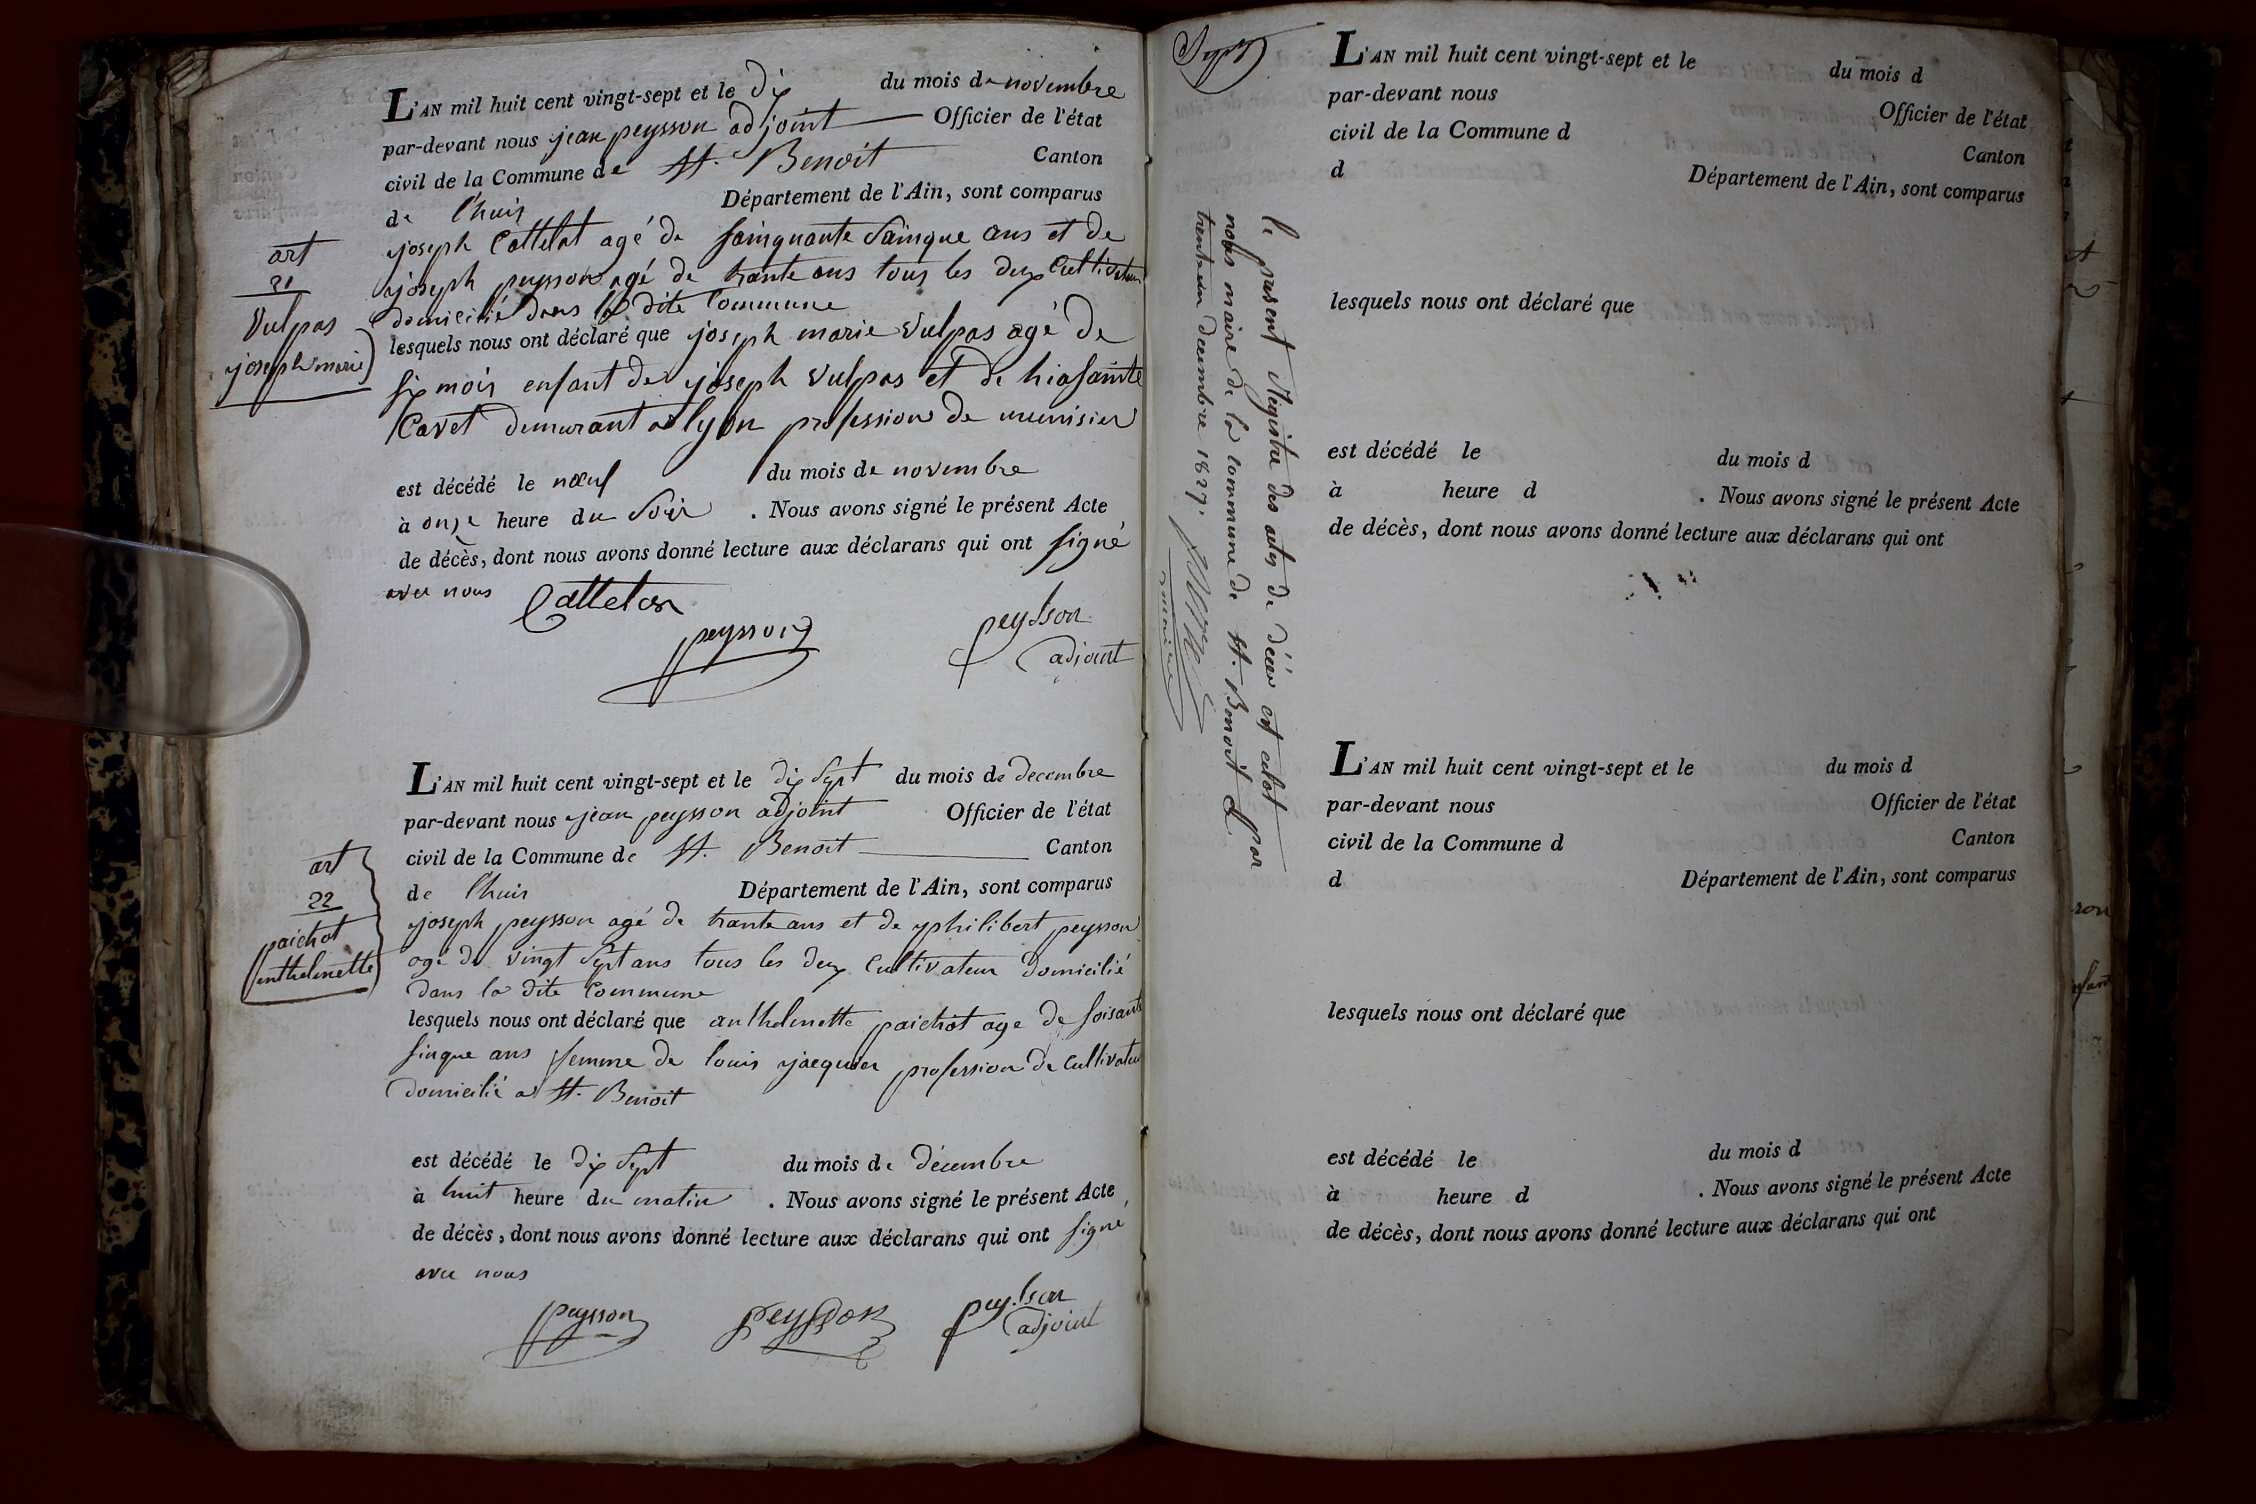 L'AN mil huit cent vingt-sept et le dix du mois de novembre
par-devant nous jean peysson adjoint Officier de l'état
civil de la Commune de St. Benoit Canton
de l'huis Département de l'Ain, sont comparus
joseph Cattelat agé de sainquante sainque ans et de
joseph peysson agé de trante ans tous les deux Cultivateur
domicilié dans la dite Commune
lesquels nous ont déclaré que joseph marie Vulpas agé de
six mois enfant de joseph Vulpas et de hiasainte
Cavet demurant a lyon profession de munisier
est décédé le nœuf du mois de novembre
à onze heure du Soir . Nous avons signé le présent Acte
de décès, dont nous avons donné lecture aux déclarans qui ont signé
avec nous
peysson
peysson
adjoint
art
21
Vulpas
joseph marie
L'AN mil huit cent vingt-sept et le dix Sept du mois de decembre
par-devant nous jean peysson adjoint Officier de l'état
civil de la Commune de St. Benoit Canton
de l'huis Département de l'Ain, sont comparus
joseph peysson agé de trante ans et de philibert peysson
age de vingt Sept ans tous les deux Cultivateur domicilié
dans la dite Commune
lesquels nous ont déclaré que anthelmette paichot age de soisante
sinque ans femme de louis jacquier profession de Cultivateur
domicilié a St. Benoit
est décédé le dix Sept du mois de décembre
à huit heure du matin . Nous avons signé le présent Acte
de décès, dont nous avons donné lecture aux déclarans qui ont signé
avec nous
peysson
peysson
peysson
adjoint
art
22
paichot
anthelmette
Sept
le present Registre des actes de décès est clot par
nous maire de la commune de St. Benoit le
trente un decembre 1827.
maire
L'AN mil huit cent vingt-sept et le du mois d
par-devant nous Officier de l'état
civil de la Commune d Canton
d Département de l'Ain, sont comparus
lesquels nous ont déclaré que
est décédé le du mois d
à heure d . Nous avons signé le présent Acte
de décès, dont nous avons donné lecture aux déclarans qui ont
L'AN mil huit cent vingt-sept et le du mois d
par-devant nous Officier de l'état
civil de la Commune d Canton
d Département de l'Ain, sont comparus
lesquels nous ont déclaré que
est décédé le du mois d
à heure d . Nous avons signé le présent Acte
de décès, dont nous avons donné lecture aux déclarans qui ont